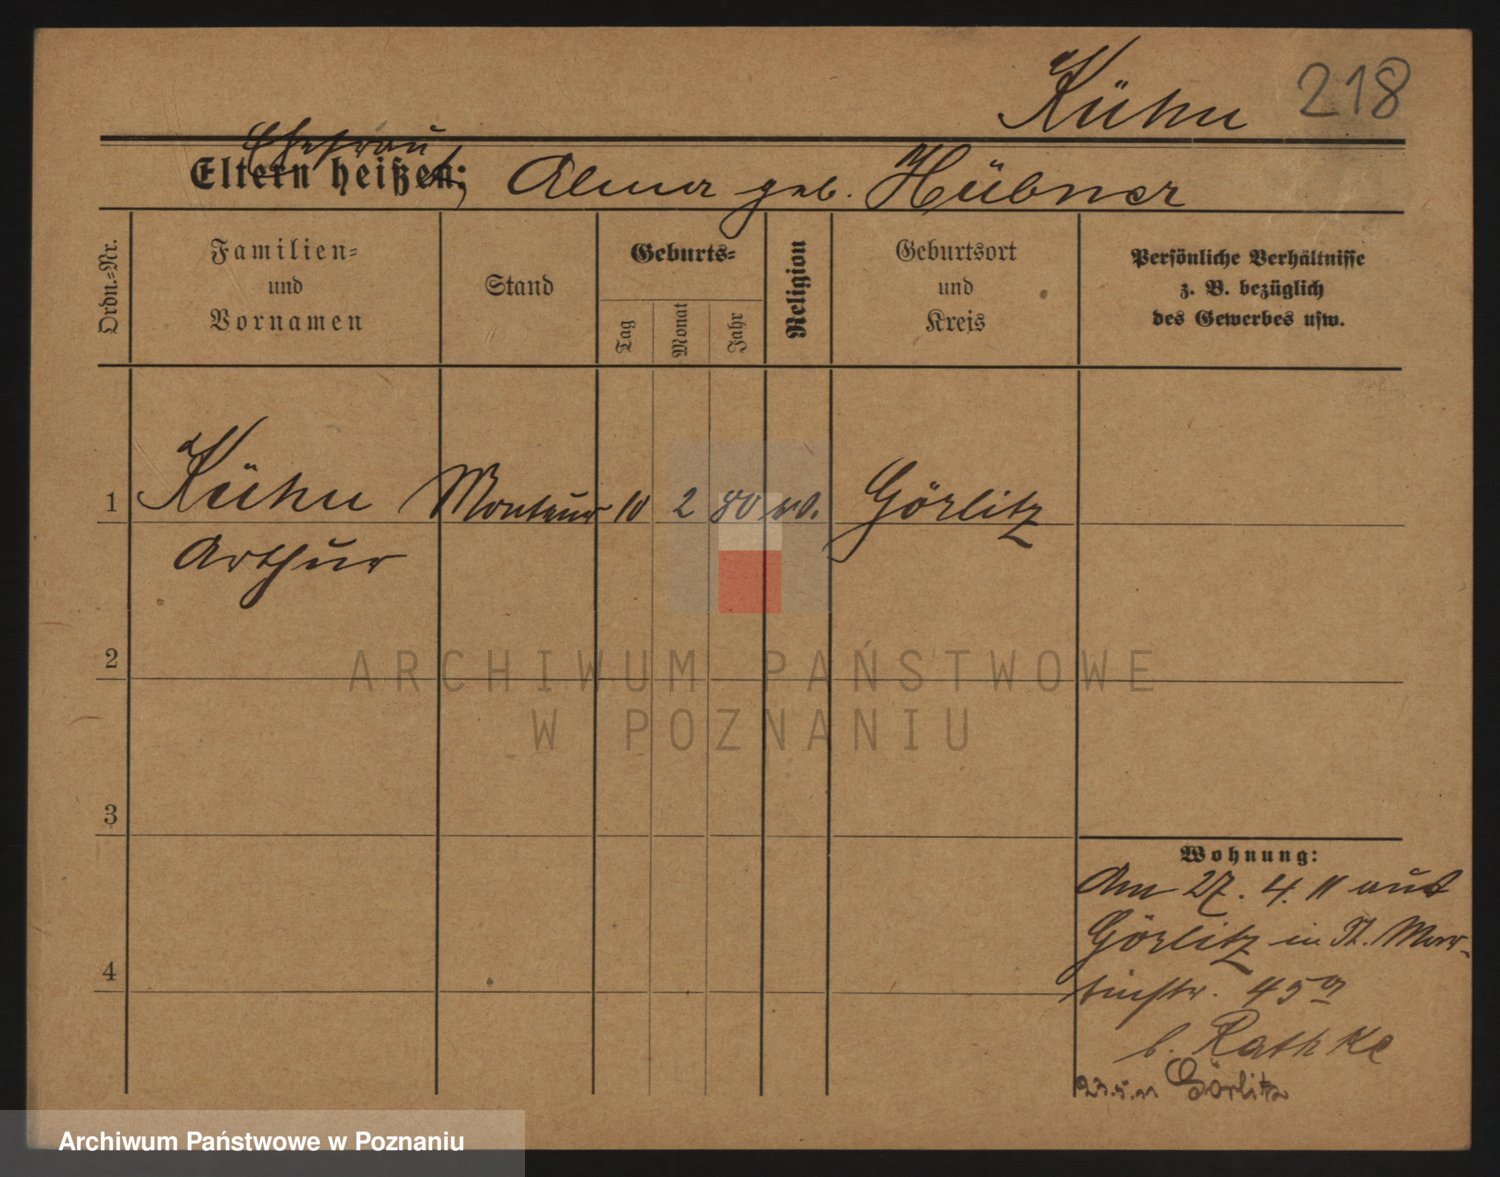 Kühn 218
Ehefrau
Eltern heißen: Alma geb. Hübner
Ordn.=Nr.
Familien=
und
Vornamen
Stand
Geburts=
Tag
Monat
Jahr
Religion
Geburtsort
und
Kreis
Persönliche Verhältnisse
z. B. bezüglich
des Gewerbes usw.
1 Kühn Monteur 10 2 80 Görlitz
Arthur
2
3
4
Wohnung:
Am 27. 4. 11 aus
Görlitz in St. Mar-
tinstr. 45a
b. Rathke
Görlitz
ARCHIWUM PAŃSTWOWE
W POZNANIU
Archiwum Państwowe w Poznaniu